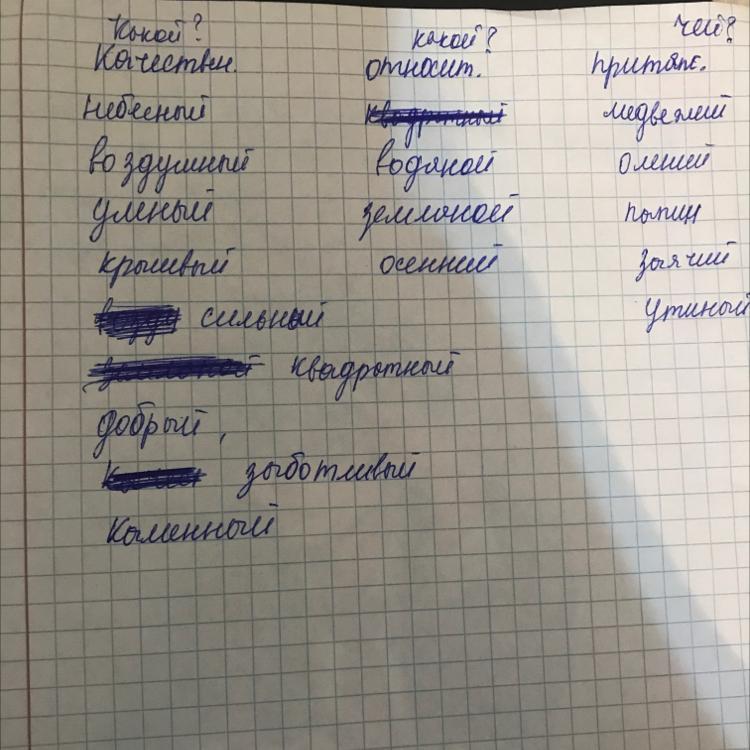 Какой? какой? чей?
Качествен. относит. притяж.
небесный медвежий
воздушный водяной олений
умный земляной папин
красивый осенний заячий
сильный утиный
квадратный
добрый,
заботливый
Каменный